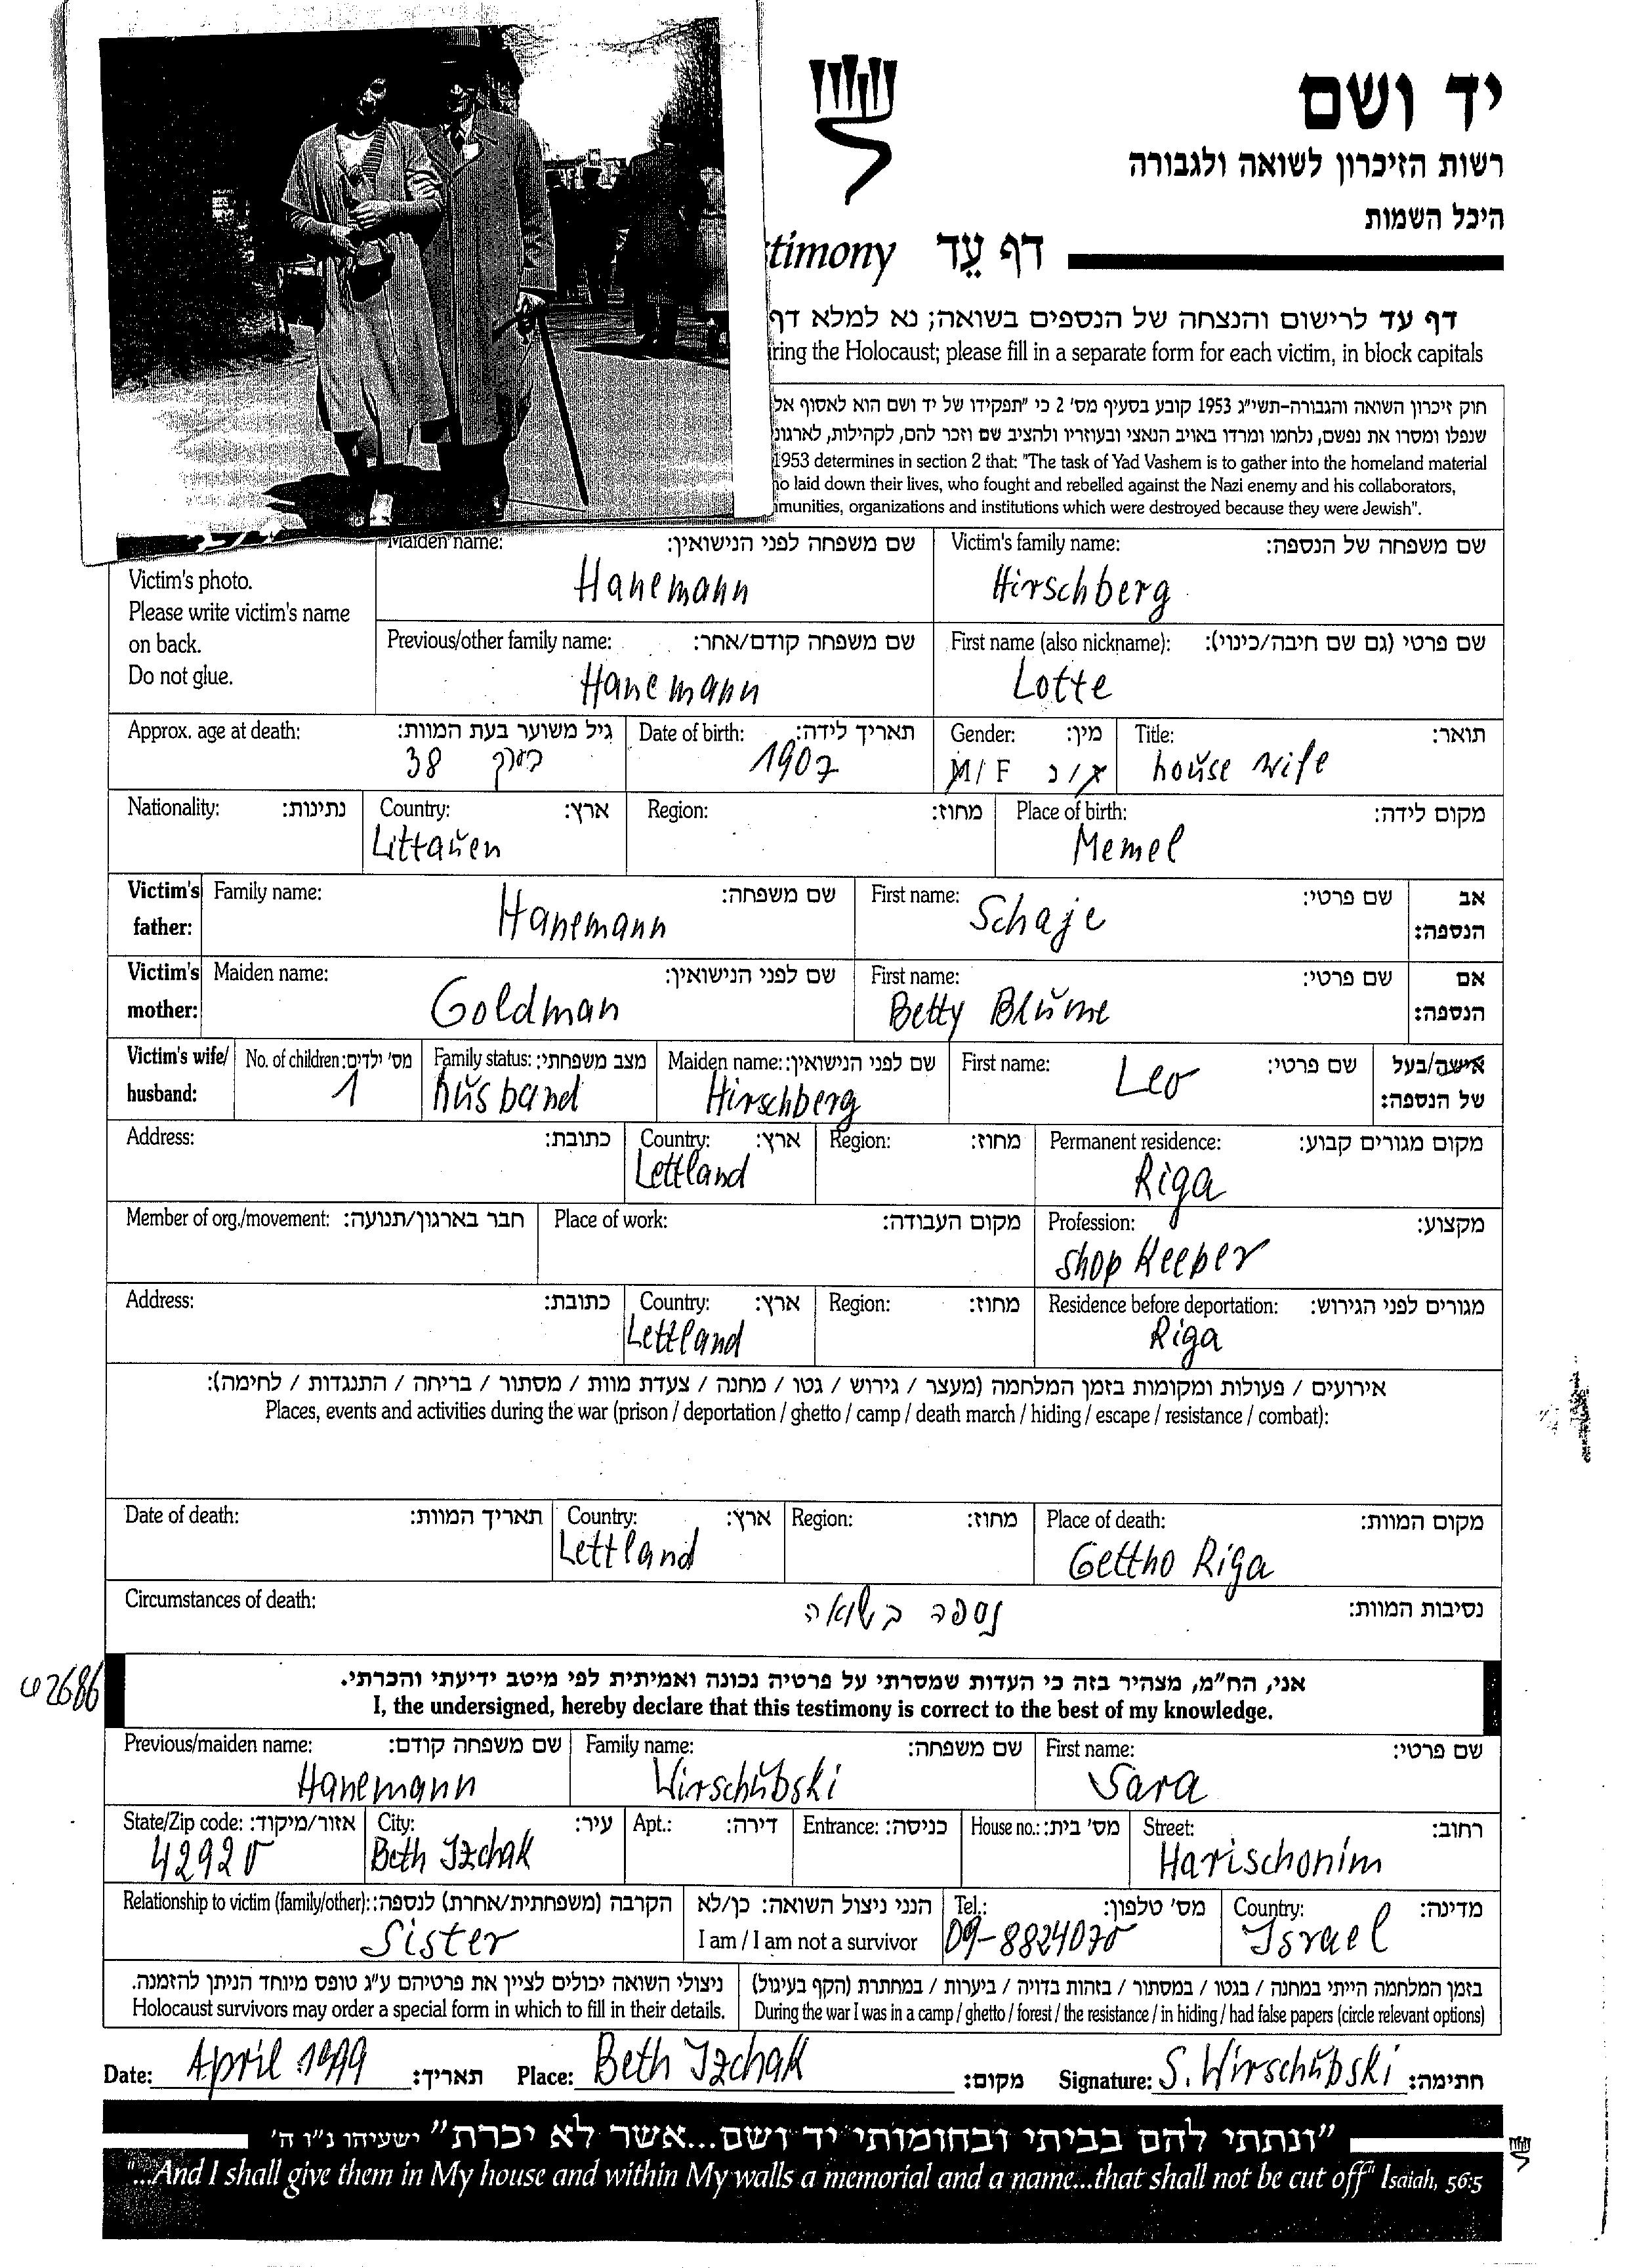 יד ושם
רשות הזיכרון לשואה ולגבורה
היכל השמות
timony דף עֵד
דף עד לרישום והנצחה של הנספים בשואה; נא למלא דף
ring the Holocaust; please fill in a separate form for each victim, in block capitals
חוק זיכרון השואה והגבורה-תשי"ג 1953 קובע בסעיף מס' 2 כי "תפקידו של יד ושם הוא לאסוף אל
שנפלו ומסרו את נפשם, נלחמו ומרדו באויב הנאצי ובעוזריו ולהציב שם וזכר להם, לקהילות, לארגונ
1953 determines in section 2 that: "The task of Yad Vashem is to gather into the homeland material
o laid down their lives, who fought and rebelled against the Nazi enemy and his collaborators,
munities, organizations and institutions which were destroyed because they were Jewish".
Victim's photo.
Please write victim's name
on back.
Do not glue.
Maiden name: שם משפחה לפני הנישואין: Victim's family name: שם משפחה של הנספה:
Hanemann Hirschberg
Previous/other family name: שם משפחה קודם/אחר: First name (also nickname): שם פרטי (גם שם חיבה/כינוי):
Hanemann Lotte
Approx. age at death: גיל משוער בעת המוות: Date of birth: תאריך לידה: Gender: מין: Title: תואר:
38 בערך 1907 M/ F ז/נ house wife
Nationality: נתינות: Country: ארץ: Region: מחוז: Place of birth: מקום לידה:
Littauen Memel
Victim's father: Family name: שם משפחה: First name: שם פרטי: אב הנספה:
Hanemann Schaje
Victim's mother: Maiden name: שם לפני הנישואין: First name: שם פרטי: אם הנספה:
Goldman Betty Blume
Victim's wife/ husband: No. of children: מס' ילדים: Family status: מצב משפחתי: Maiden name: שם לפני הנישואין: First name: שם פרטי: אישה/בעל של הנספה:
1 husband Hirschberg Leo
Address: כתובת: Country: ארץ: Region: מחוז: Permanent residence: מקום מגורים קבוע:
Lettland Riga
Member of org./movement: חבר בארגון/תנועה: Place of work: מקום העבודה: Profession: מקצוע:
shop Keeper
Address: כתובת: Country: ארץ: Region: מחוז: Residence before deportation: מגורים לפני הגירוש:
Lettland Riga
אירועים / פעולות ומקומות בזמן המלחמה (מעצר / גירוש / גטו / מחנה / צעדת מוות / מסתור / בריחה / התנגדות / לחימה):
Places, events and activities during the war (prison / deportation / ghetto / camp / death march / hiding / escape / resistance / combat):
Date of death: תאריך המוות: Country: ארץ: Region: מחוז: Place of death: מקום המוות:
Lettland Gettho Riga
Circumstances of death: נסיבות המוות:
נספה בשואה
אני, הח"מ, מצהיר בזה כי העדות שמסרתי על פרטיה נכונה ואמיתית לפי מיטב ידיעתי והכרתי.
I, the undersigned, hereby declare that this testimony is correct to the best of my knowledge.
Previous/maiden name: שם משפחה קודם: Family name: שם משפחה: First name: שם פרטי:
Hanemann Wirschubski Sara
State/Zip code: אזור/מיקוד: City: עיר: Apt.: דירה: Entrance: כניסה: House no.: מס' בית: Street: רחוב:
42920 Beth Izchak Harischonim
Relationship to victim (family/other): הקרבה (משפחתית/אחרת) לנספה: הנני ניצול השואה: כן/לא Tel.: מס' טלפון: Country: מדינה:
Sister I am / I am not a survivor 09-8824070 Israel
ניצולי השואה יכולים לציין את פרטיהם ע"ג טופס מיוחד הניתן להזמנה. בזמן המלחמה הייתי במחנה / בגטו / במסתור / בזהות בדויה / ביערות / במחתרת (הקף בעיגול)
Holocaust survivors may order a special form in which to fill in their details. During the war I was in a camp / ghetto / forest / the resistance / in hiding / had false papers (circle relevant options)
Date: April 1999 תאריך: Place: Beth Izchak מקום: Signature: S. Wirschubski חתימה:
"ונתתי להם בביתי ובחומותי יד ושם...אשר לא יכרת" ישעיהו נ"ו ה'
"...And I shall give them in My house and within My walls a memorial and a name...that shall not be cut off" Isaiah, 56:5